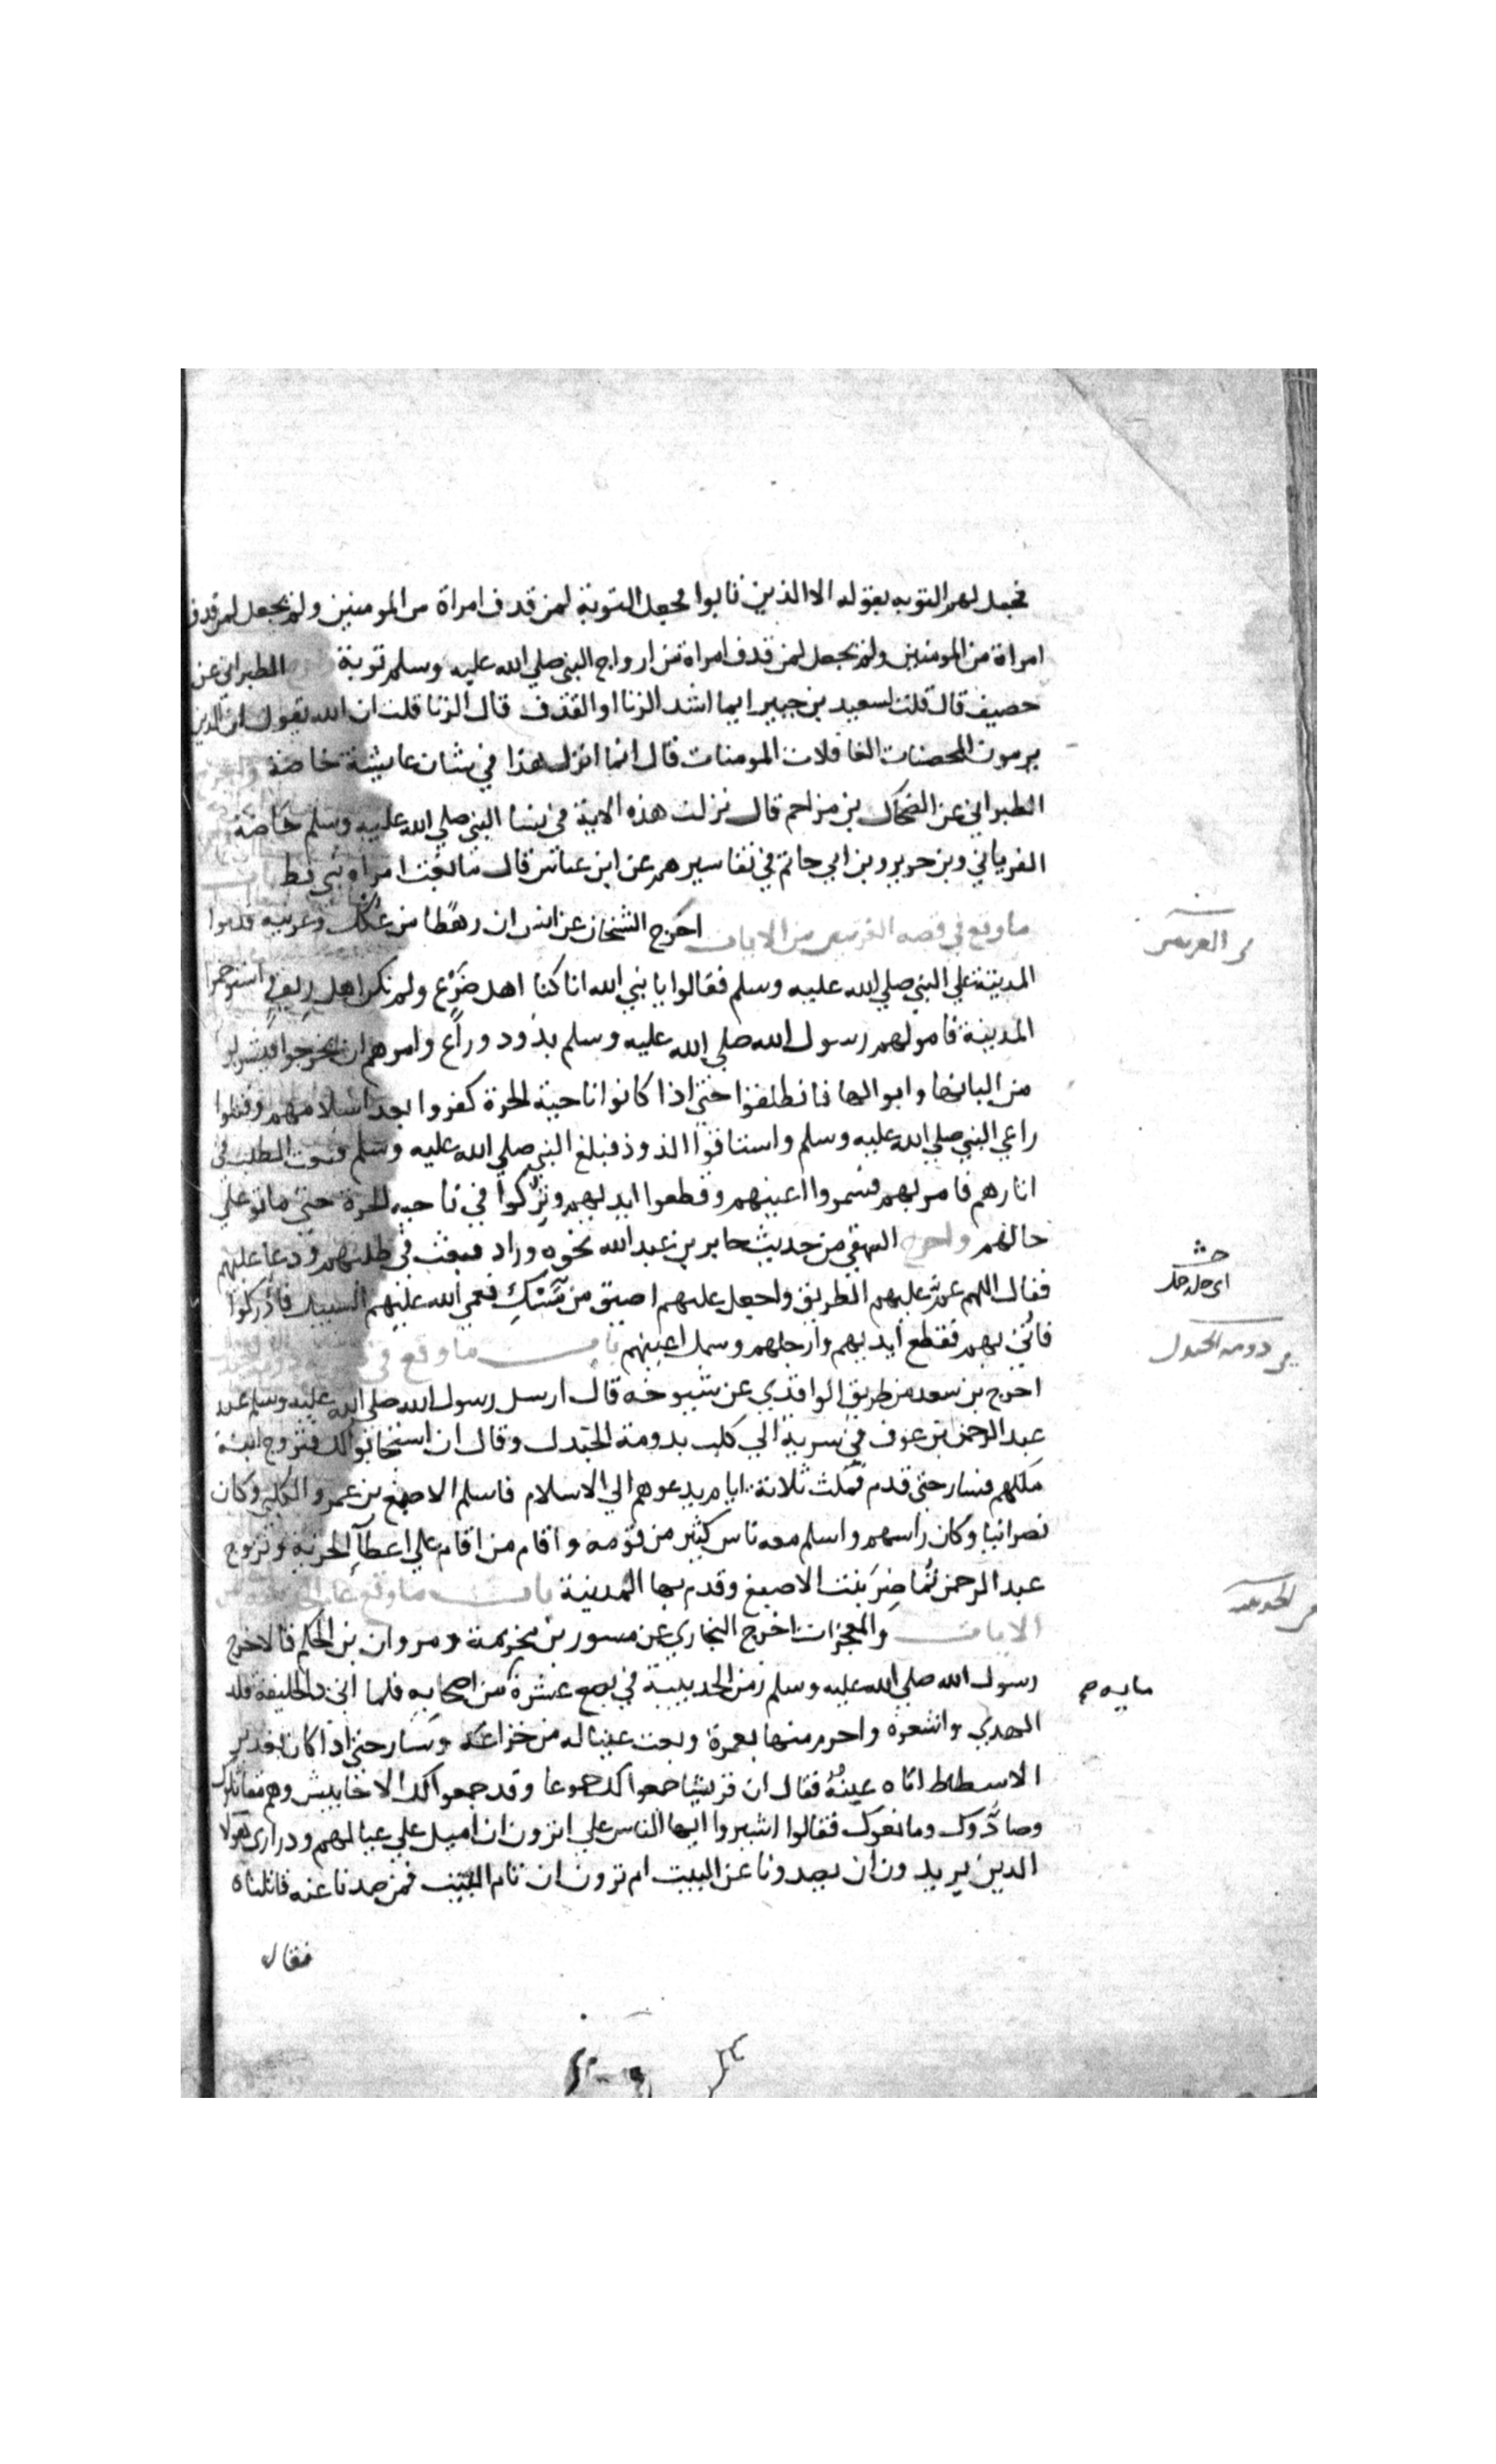 فجعل لهم التوبه بقوله الا الذين تابوا فجعل التوبة لمن قدف امراة من المومنين ولم يجعل لمن قدف
امراة من المومنين ولم يجعل لمن قدف امراة من ازواج النبي صلي الله عليه وسلم توبة الطبراني عن
خصيف قال قلت لسعيد بن جبير ايما اشد الزنا او القذف قال الزنا قلت ان الله يقول ان الذين
يرمون المحصنات الغافلات المومنات قال انما انزل هذا في شان عايشة خاصة واخرج
الطبراني عن الضحاك بن مزاحم قال نزلت هذه الاية في نسا النبي صلي الله عليه وسلم خاصة
الفريابي وبن جرير وبن ابي حاتم في تفاسيرهم عن ابن عباس قال ما بغت امراة نبي قط باب
ما وقع في قصه العرنيين من الايات اخرج الشيخان عن انس ان رهطا من عكل وعرينه قدموا
المدينة علي النبي صلي الله عليه وسلم فقالوا يا نبي الله انا كنا اهل ضرع ولم نكن اهل ريف استوخموا
المدينة فامر لهم رسول الله صلي الله عليه وسلم بذود وراع وامرهم ان يخرجوا فيشربوا
من البانها وابوالها فانطلقوا حتي اذا كانوا ناحية الحرة كفروا بعد اسلامهم وقتلوا
راعي النبي صلي الله عليه وسلم واستاقوا الذوذ فبلغ النبي صلي الله عليه وسلم فبعث الطلب في
اثارهم فامر بهم فسمروا اعينهم وقطعوا ايديهم وتركوا في ناحيه الحرة حتي ماتو علي
حالهم واخرج البيهقي من حديث جابر بن عبد الله نحوه وزاد فبعث في طلبهم ودعا عليهم
فقال اللهم عم عليهم الطريق واجعل عليهم اضيق من مسك فعمي الله عليهم السبيل فادركوا
فاتي بهم فقطع ايديهم وارجلهم وسمل اعينهم باب ما وقع في
اخرج بن سعد من طريق الواقدي عن شيوخه قال ارسل رسول الله صلي الله عليه وسلم عبد
عبد الرحمن بن عوف في سرية الي كلب بدومة الجندل وقال ان استجابوا لك فتزوج ابنة
ملكهم فسار حتي قدم فمكث ثلاثة ايام يدعوهم الي الاسلام فاسلم الاصبغ بن عمرو الكلبي وكان
نصرانيا وكان راسهم واسلم معه ناس كثير من قومه واقام من اقام علي اعطآ الجزيه وتزوج
عبد الرحمن تماضر بنت الاصبغ وقدم بها المدينة باب ما وقع عام الحديبيه من
الايات والمعجزات اخرج البخاري عن مسور بن مخرمة ومروان بن الحكم قالا خرج
رسول الله صلي الله عليه وسلم زمن الحديبية في بضع عشرة من اصحابه فلما اتي ذا الحليفة قلد
الهدي واشعره واحرم منها بعمرة وبعث عينا له من خزاعة وسار حتي اذا كان بغدير
الاسطاط اتاه عينه فقال ان قريشا جمعوا لك جموعا وقد جمعوا لك الاحابيش وهم مقاتلوك
وصادوك ومانعوك فقالوا اشيروا ايها الناس علي اترون ان اميل علي عيالهم ودراري هولا
الدين يريدون ان يصدونا عن البيت ام ترون ان نام البيت فمن صدنا عنه قاتلناه
فقال
العرنيين
دومه الجندل
الحديبيه
مايه صح